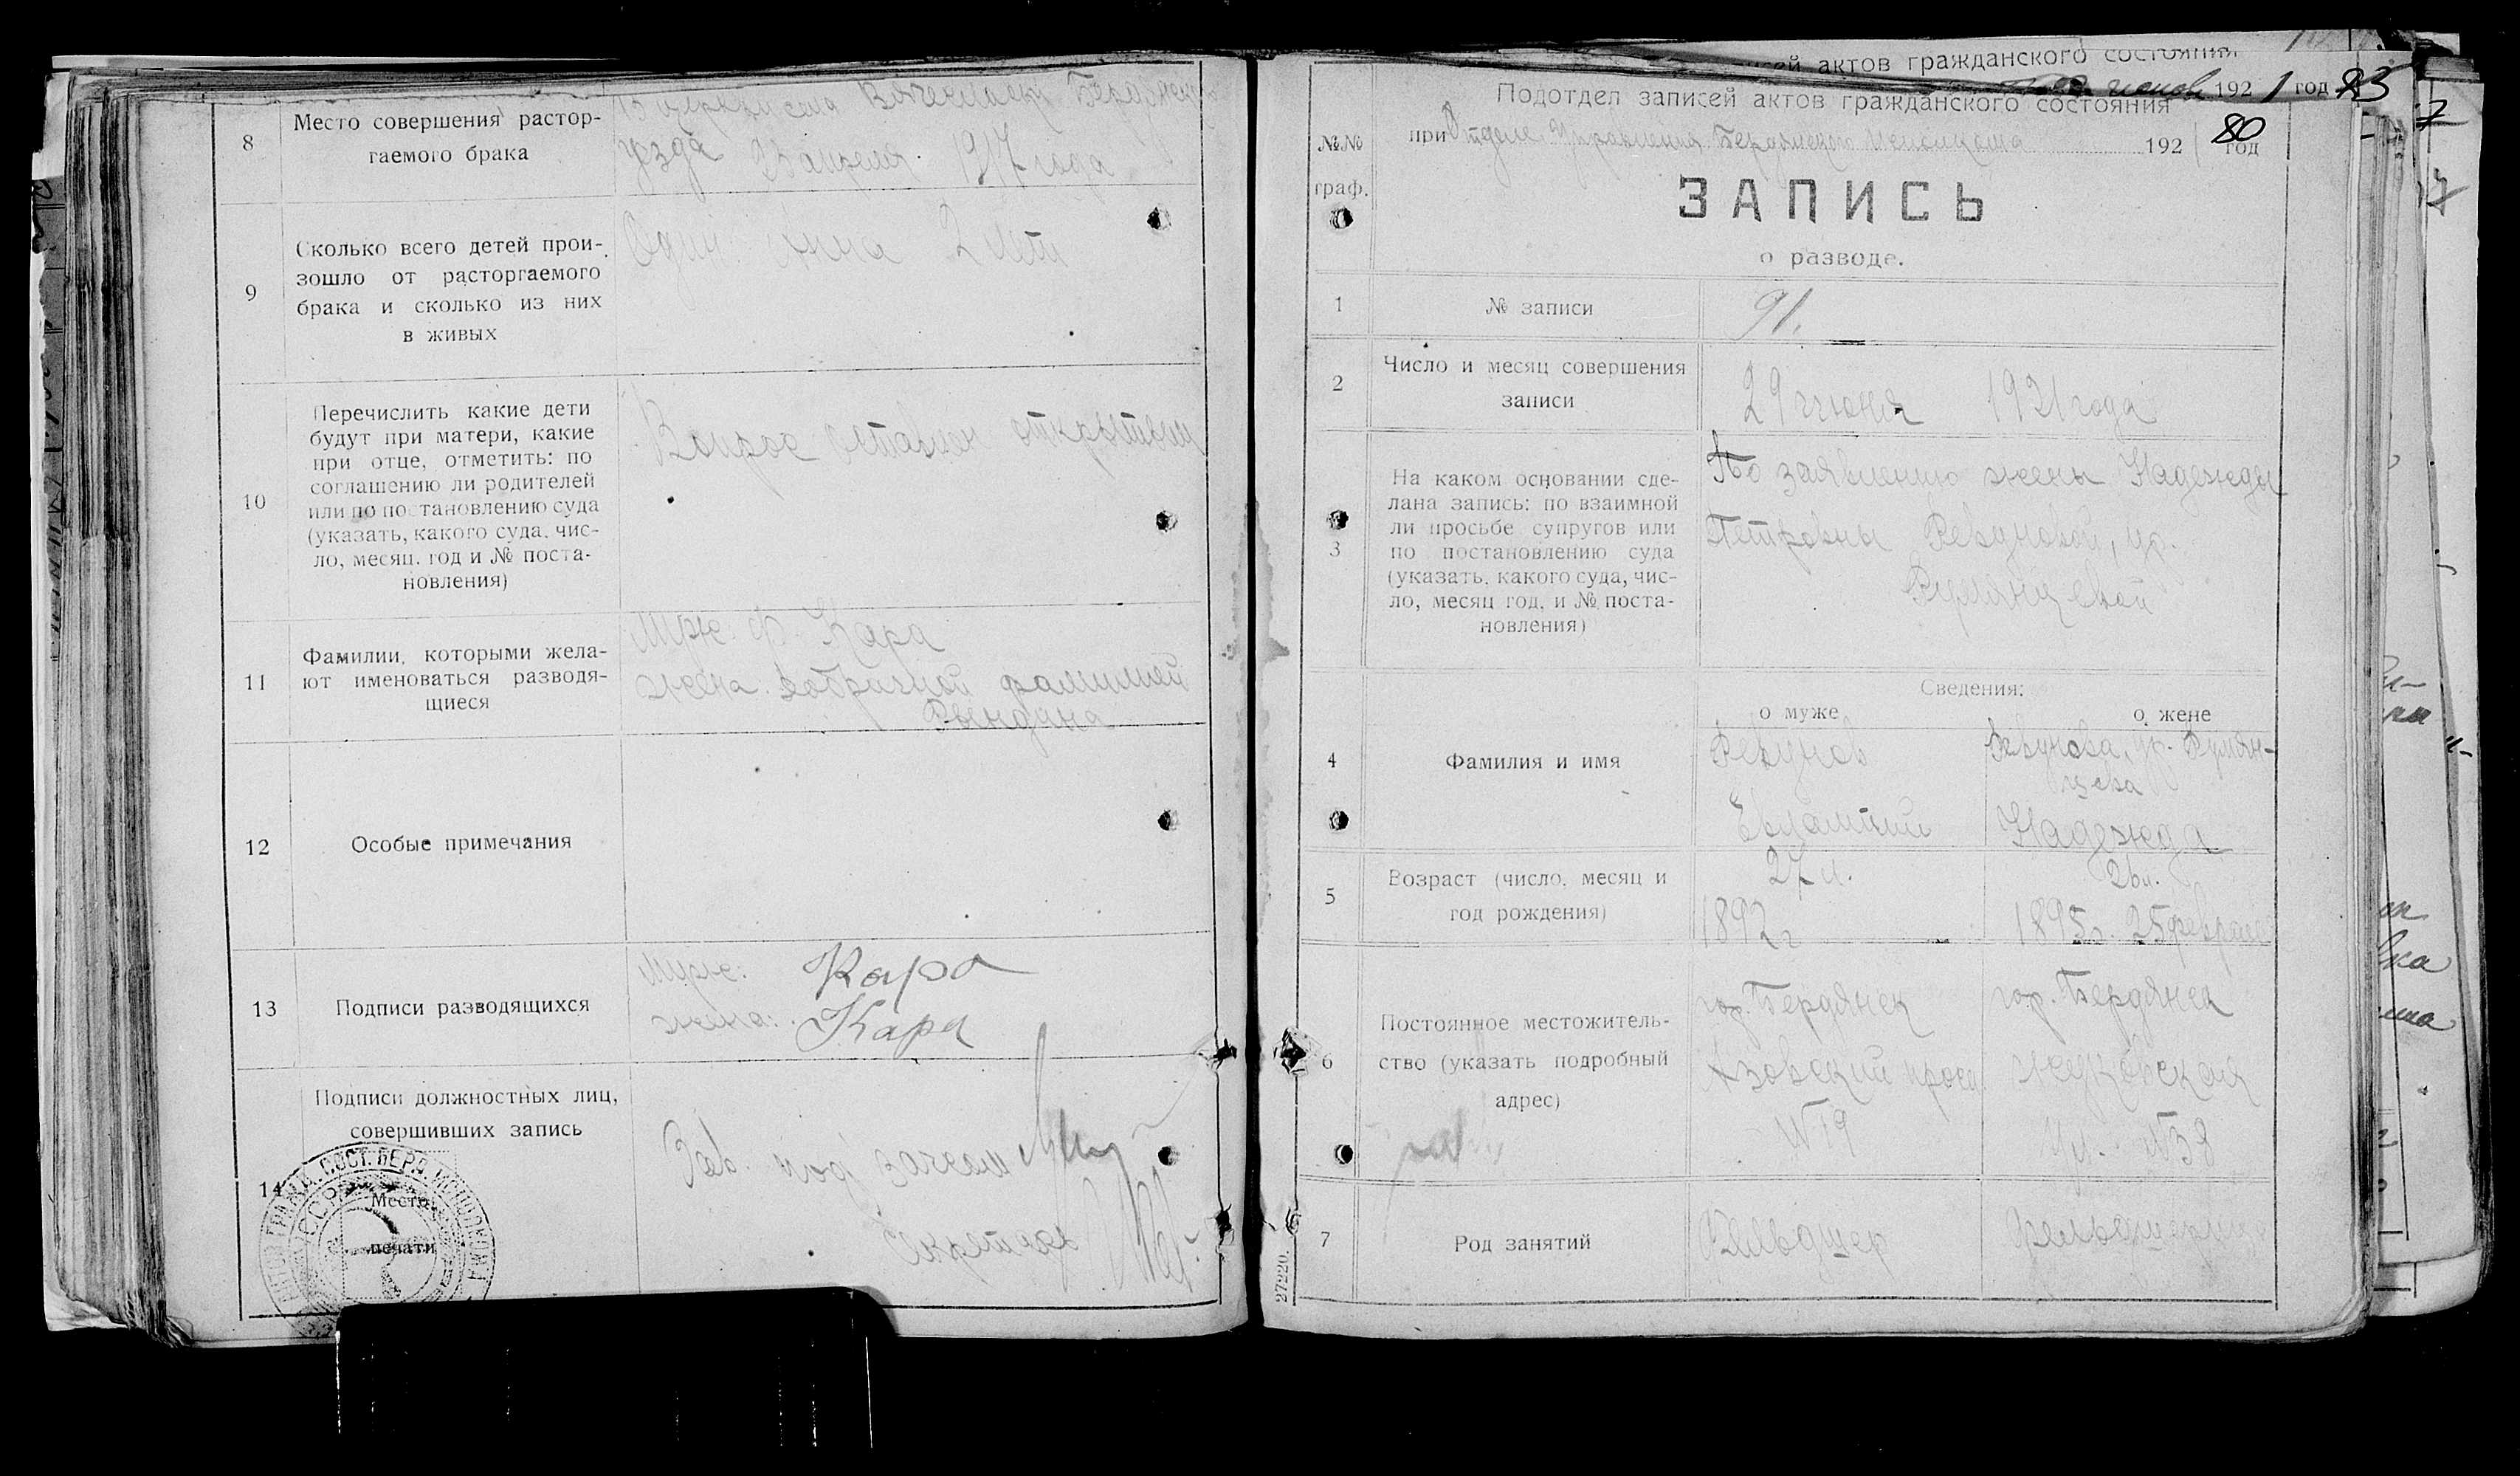 8
Место совершения растор-
гаемого брака
уезда 1917 года
9
Сколько всего детей прои-
зошло от расторгаемого
брака и сколько из них
в живых
Один. Анна 2 лет
10
Перечислить какие дети
будут при матери, какие
при отце, отметить: по
соглашению ли родителей
или по постановлению суда
(указать, какого суда, чис-
ло, месяц, год и № поста-
новления)
Вопрос оставлен открытым
11
Фамилии, которыми жела-
ют именоваться разводя-
щиеся
Муж: ф. Кара
жена добрачной фамилией
Рындина
12
Особые примечания
13
Подписи разводящихся
Муж: Кара
жена: Кара
14
Подписи должностных лиц,
совершивших запись
Место
печати
Зав. под
Секретарь
актов гражданского состояния
1921 год
83
Подотдел записей актов гражданского состояния
при Отделе Управления Бердянского Исполкома 1921 год
80
№№
граф.
ЗАПИСЬ
о разводе.
1
№ записи
91.
2
Число и месяц совершения
записи
29 июня 1921 года
3
На каком основании сде-
лана запись: по взаимной
ли просьбе супругов или
по постановлению суда
(указать, какого суда, чис-
ло, месяц год, и № поста-
новления)
По заявлению жены Надежды
Петровны Ревуновой, ур.
Румянцевой
Сведения:
о муже
о жене
4
Фамилия и имя
Ревунов
Евлампий
Ревунова, ур. Румян-
цева
Надежда
5
Возраст (число, месяц и
год рождения)
27 л.
1892 г
26 л.
1895 г. 25 февраля
6
Постоянное местожитель-
ство (указать подробный
адрес)
гор. Бердянск
Азовский просп
№ 19
гор. Бердянск
Жуковская
ул. № 38
7
Род занятий
Фельдшер
Фельдшерица
27220.